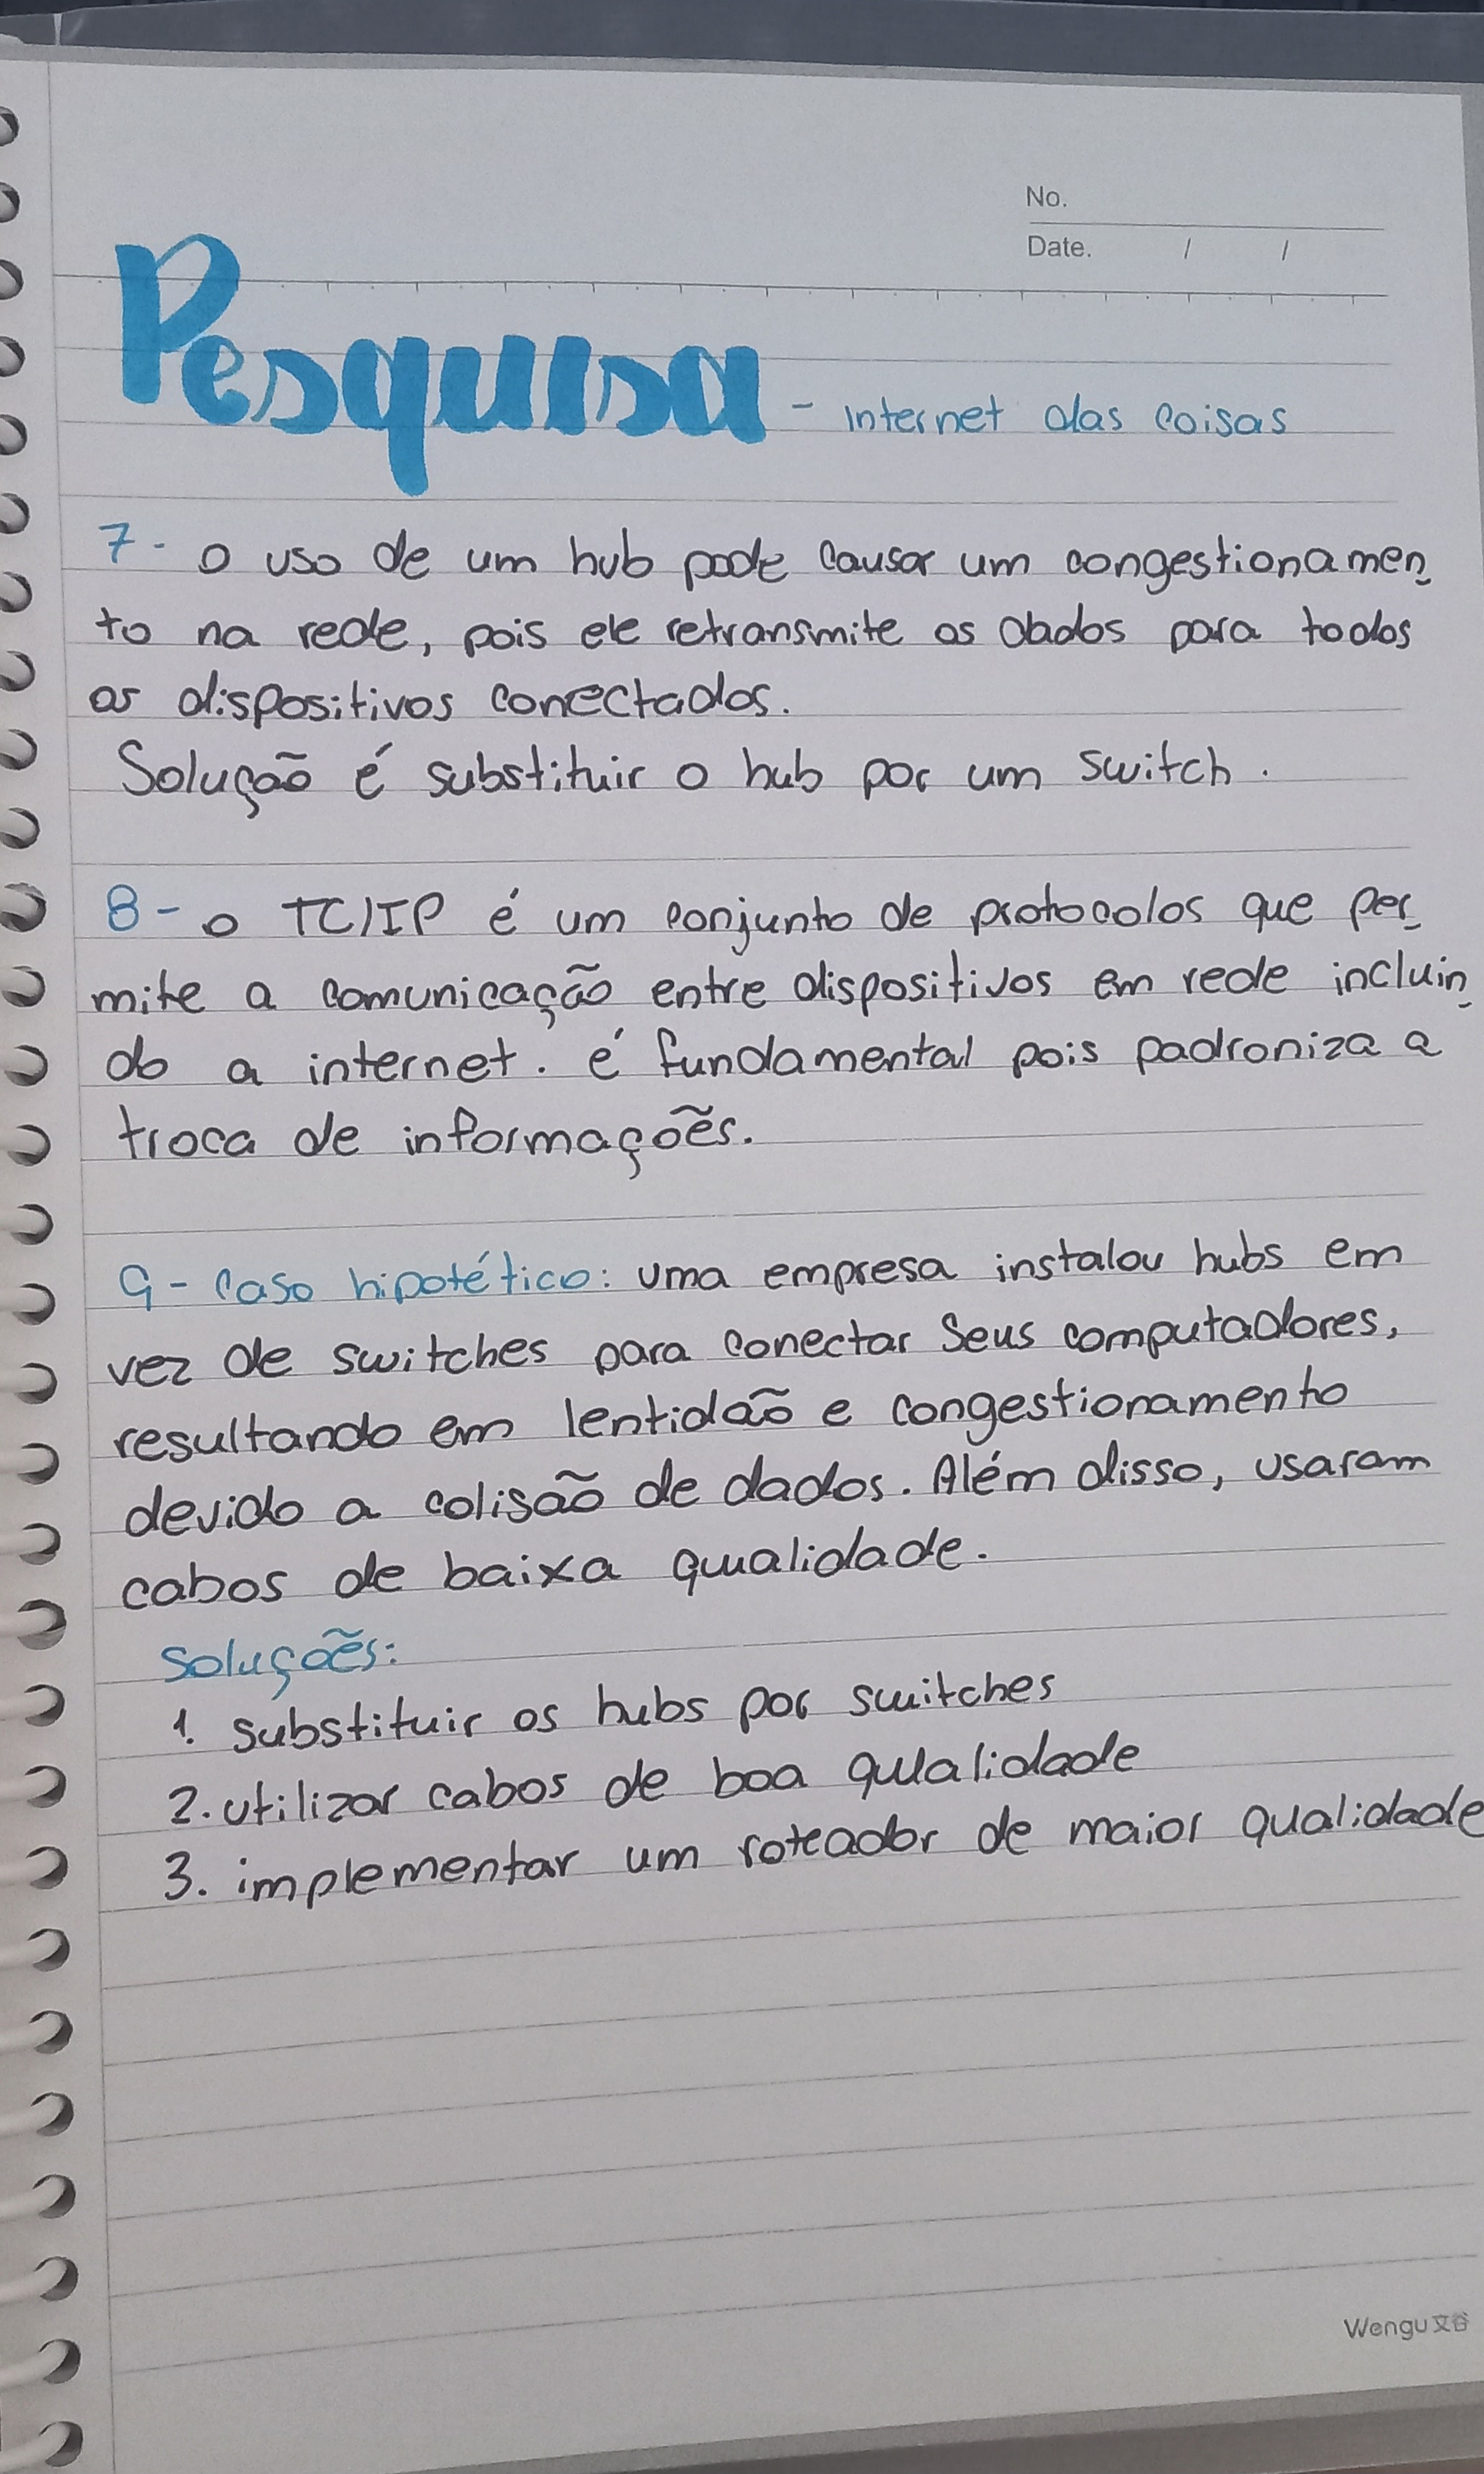 No.
Date. / /
Pesquisa - internet das coisas
7- o uso de um hub pode causar um congestionamen
to na rede, pois ele retransmite os dados para todos
os dispositivos conectados.
Solução é substituir o hub por um switch.
8- o TC/IP é um conjunto de protocolos que per
mite a comunicação entre dispositivos em rede incluin
do a internet. é fundamental pois padroniza a
troca de informações.
9- Caso hipotético: uma empresa instalou hubs em
vez de switches para conectar seus computadores,
resultando em lentidão e congestionamento
devido a colisão de dados. Além disso, usaram
cabos de baixa qualidade.
Soluções:
1. substituir os hubs por switches
2. utilizar cabos de boa qualidade
3. implementar um roteador de maior qualidade
Wengu文谷